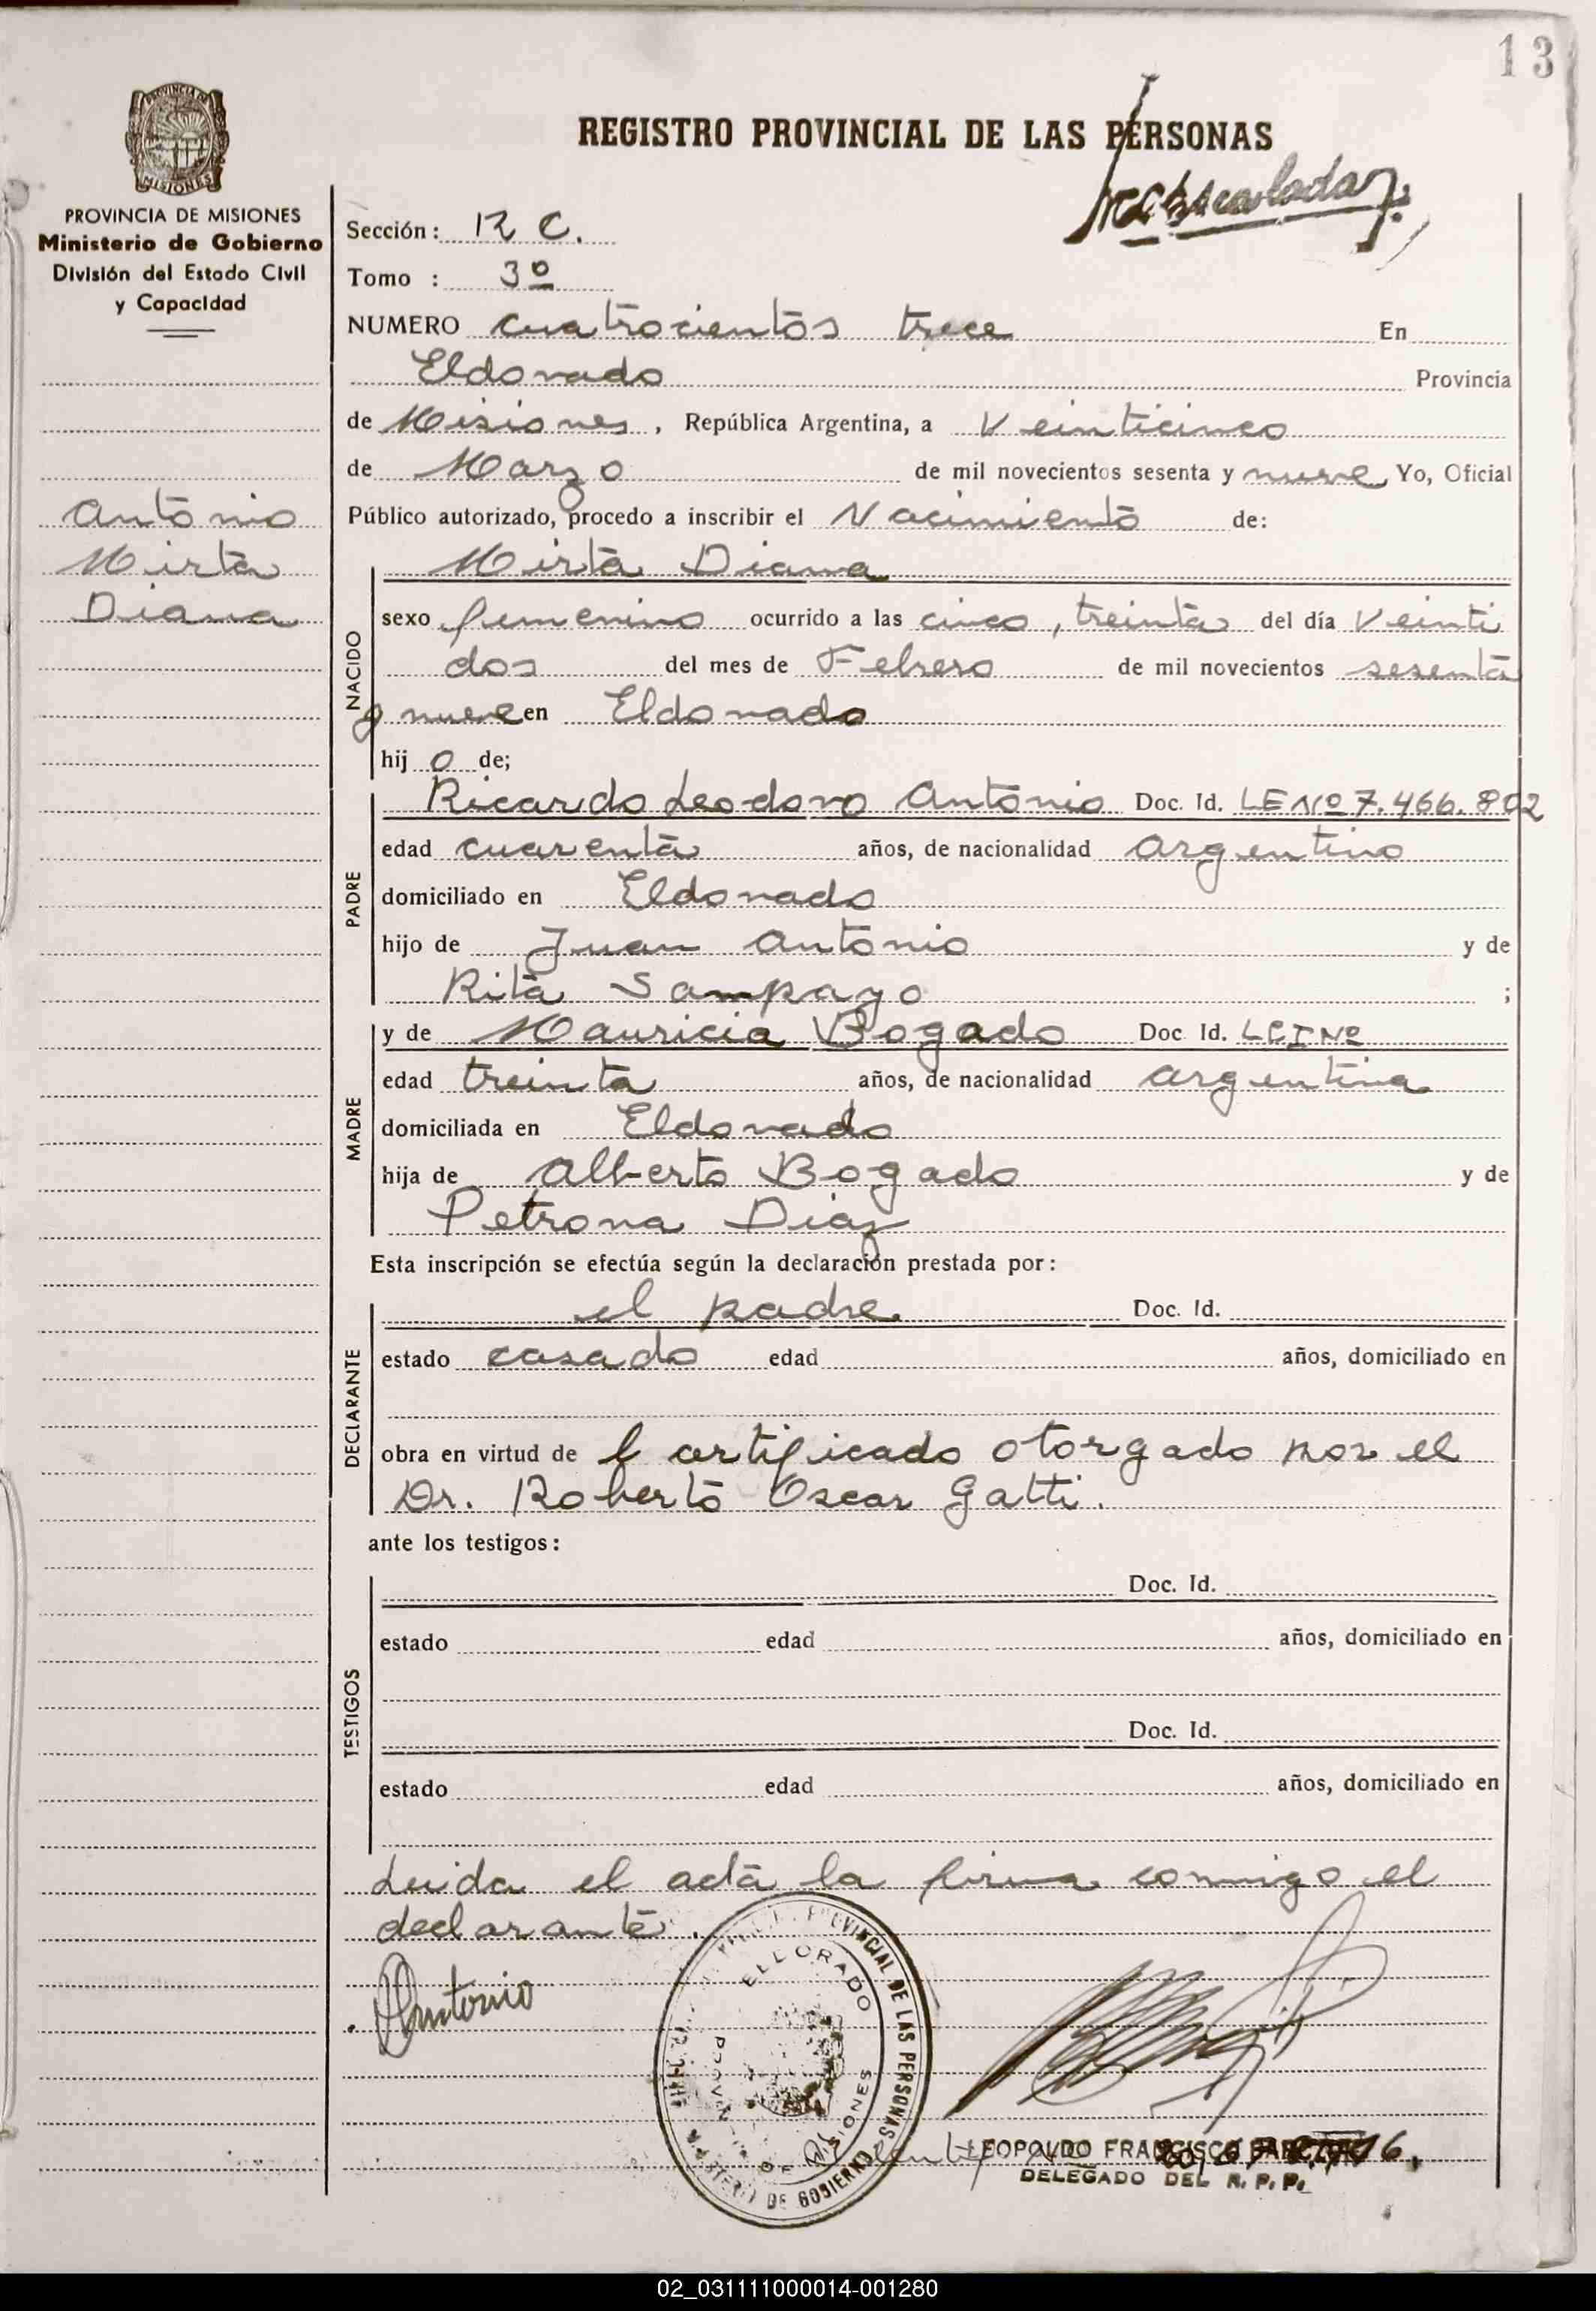 13
REGISTRO PROVINCIAL DE LAS PERSONAS
PROVINCIA DE MISIONES
Ministerio de Gobierno
División del Estado Civil
y Capacidad
Sección: R C.
Tomo : 3º
NUMERO cuatrocientos trece En
Eldorado Provincia
de Misiones, República Argentina, a Veinticinco
de Marzo de mil novecientos sesenta y nueve Yo, Oficial
Público autorizado, procedo a inscribir el Nacimiento de:
Antonio
Mirta
Diana
NACIDO
Mirta Diana
sexo femenino ocurrido a las cinco, treinta del día Veinti
dos del mes de Febrero de mil novecientos sesenta
y nueve en Eldorado
hij o de;
PADRE
Ricardo Leodoro Antonio Doc. Id. LE Nº 7.466.802
edad cuarenta años, de nacionalidad argentino
domiciliado en Eldorado
hijo de Juan Antonio y de
Rita Sampayo ;
MADRE
y de Mauricia Bogado Doc. Id. LCI Nº
edad treinta años, de nacionalidad argentina
domiciliada en Eldorado
hija de Alberto Bogado y de
Petrona Diaz
Esta inscripción se efectúa según la declaración prestada por:
DECLARANTE
el padre Doc. Id.
estado casado edad años, domiciliado en
obra en virtud de Certificado otorgado por el
Dr. Roberto Oscar Gatti.
ante los testigos:
TESTIGOS
Doc. Id.
estado edad años, domiciliado en
Doc. Id.
estado edad años, domiciliado en
Leida el acta la firma comigo el
declarante.
Antonio
PROVINCIAL DE LAS PERSONAS
ELDORADO
MISIONES
MINISTERIO DE GOBIERNO
LEOPOLDO FRANCISCO
DELEGADO DEL R. P. P.
02_031111000014-001280